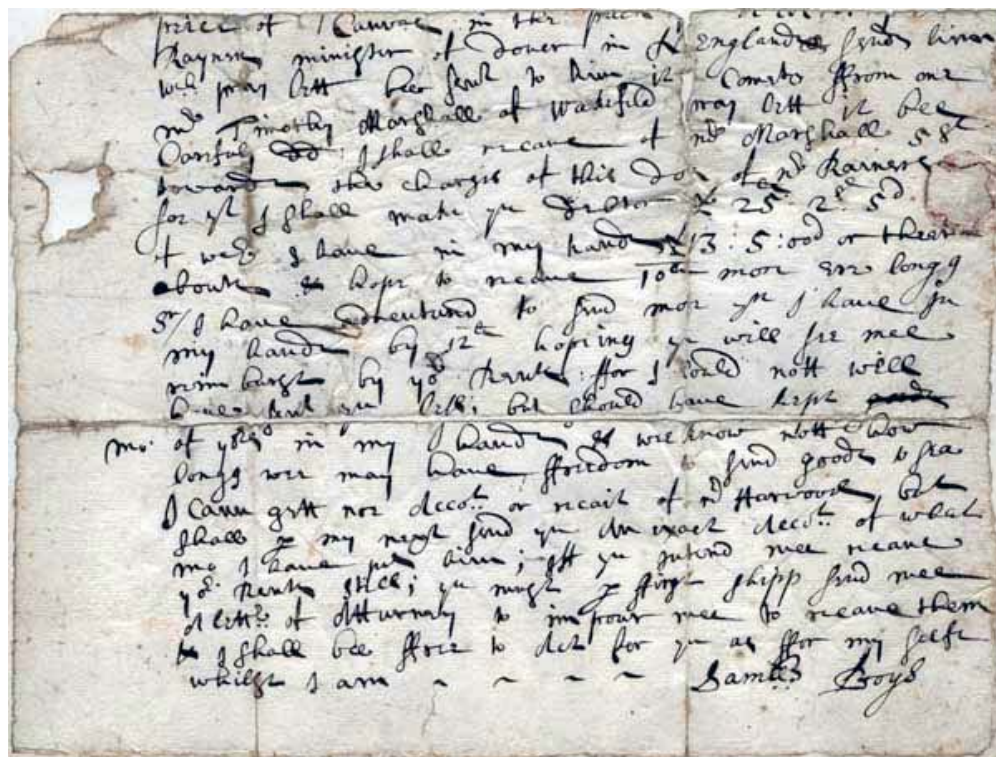 peice of Canvas in the pack
Rayner minister of dover in England send linen
wch pray lett bee sent to him it Comes ffrom one
mr Timothy Marshall of Wakefild pray lett it bee
Carfuly dd I shall receave of mr Marshall 58s
towards the charges of this &c of mr Rainers
for yt I shall make yu debtor 25 2 5d
of wch I have in my hand 13 : 5 : 00d or there
abouts & hope to receave 10 more ere longg
Sr/ I have adventured to send mor yn I have in
my hands by 12 hoping yu will see mee
reimburst by yor Rents ffor I could nott well
have sent yu less; but should have kept
mo of yors in my hand wee know nott how
longg wee may have ffreedom to send goods to sea
I Cann gett noe Accot or receit of mr Harwood but
shall p my next send yu An exact Accot of what
mo I have pd him; iff yu intend mee receave
yor Rents still; yu must p ffirst shipp send mee
A lettr of Atturnay to impour mee to receave them
I shall bee ffree to Act for yu as ffor my selfe
whilst I am ~ ~ ~ ~ ~ Samll Boys